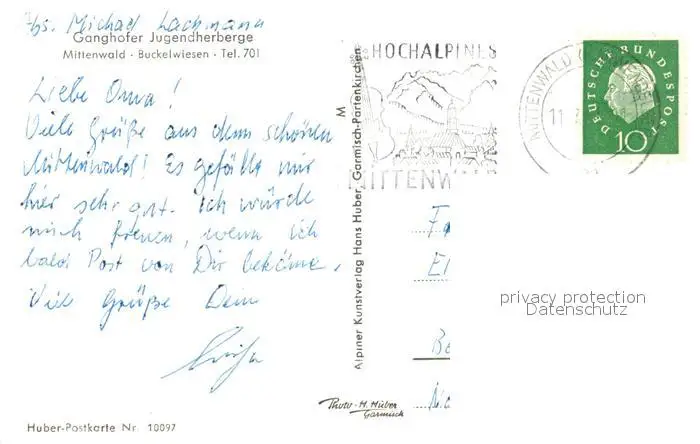 Abs. Michael Lachmann
Ganghofer Jugendherberge
Mittenwald · Buckelwiesen · Tel. 701
Liebe Oma!
Viele Grüße aus dem schönen
Mittenwald! Es gefällt mir
hier sehr gut. Ich würde
mich freuen, wenn ich
bald Post von Dir bekäme.
Viele Grüße Dein
Huber-Postkarte Nr. 10097
M
Alpiner Kunstverlag Hans Huber, Garmisch-Partenkirchen
HOCHALPINES
MITTENW
MITTENWALD
11
DEUTSCHE BUNDESPOST
10
privacy protection
Datenschutz
Photo-H. Huber
Garmisch